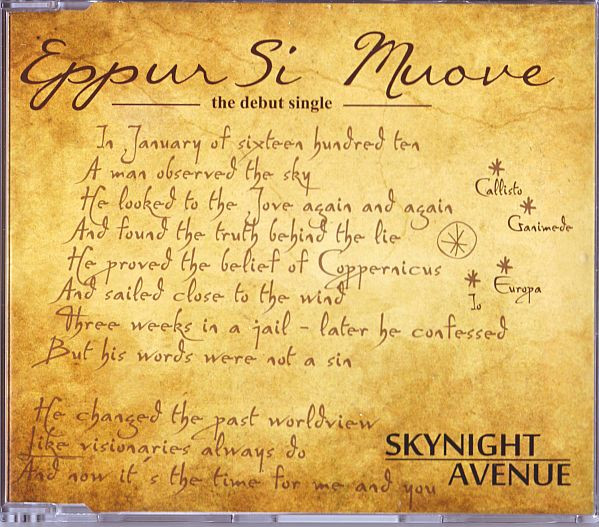 Eppur Si Muove
the debut single
In January of sixteen hundred ten
A man observed the sky
He looked to the Jove again and again
And found the truth behind the lie
He proved the belief of Coppernicus
And sailed close to the wind
Three weeks in a jail - later he confessed
But his words were not a sin
Callisto
Ganimede
Europa
Io
He changed the past worldview
Like visionaries always do
And now it´s the time for me and you
SKYNIGHT
AVENUE